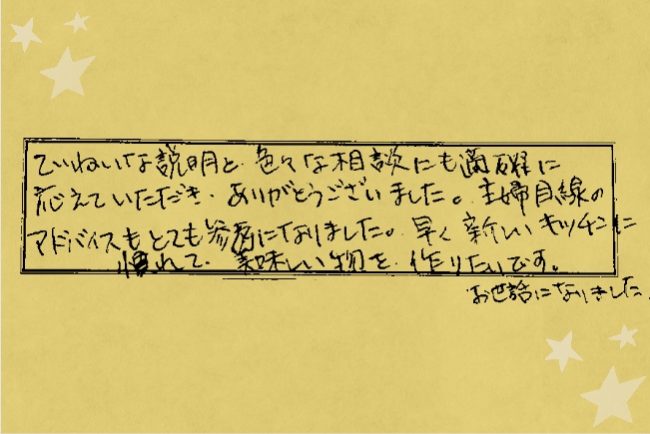 ていねいな説明と、色々な相談にも適確に
応えていただき、ありがとうございました。主婦目線の
アドバイスもとても参考になりました。早く新しいキッチンに
慣れて、美味しい物を、作りたいです。
お世話になりました。